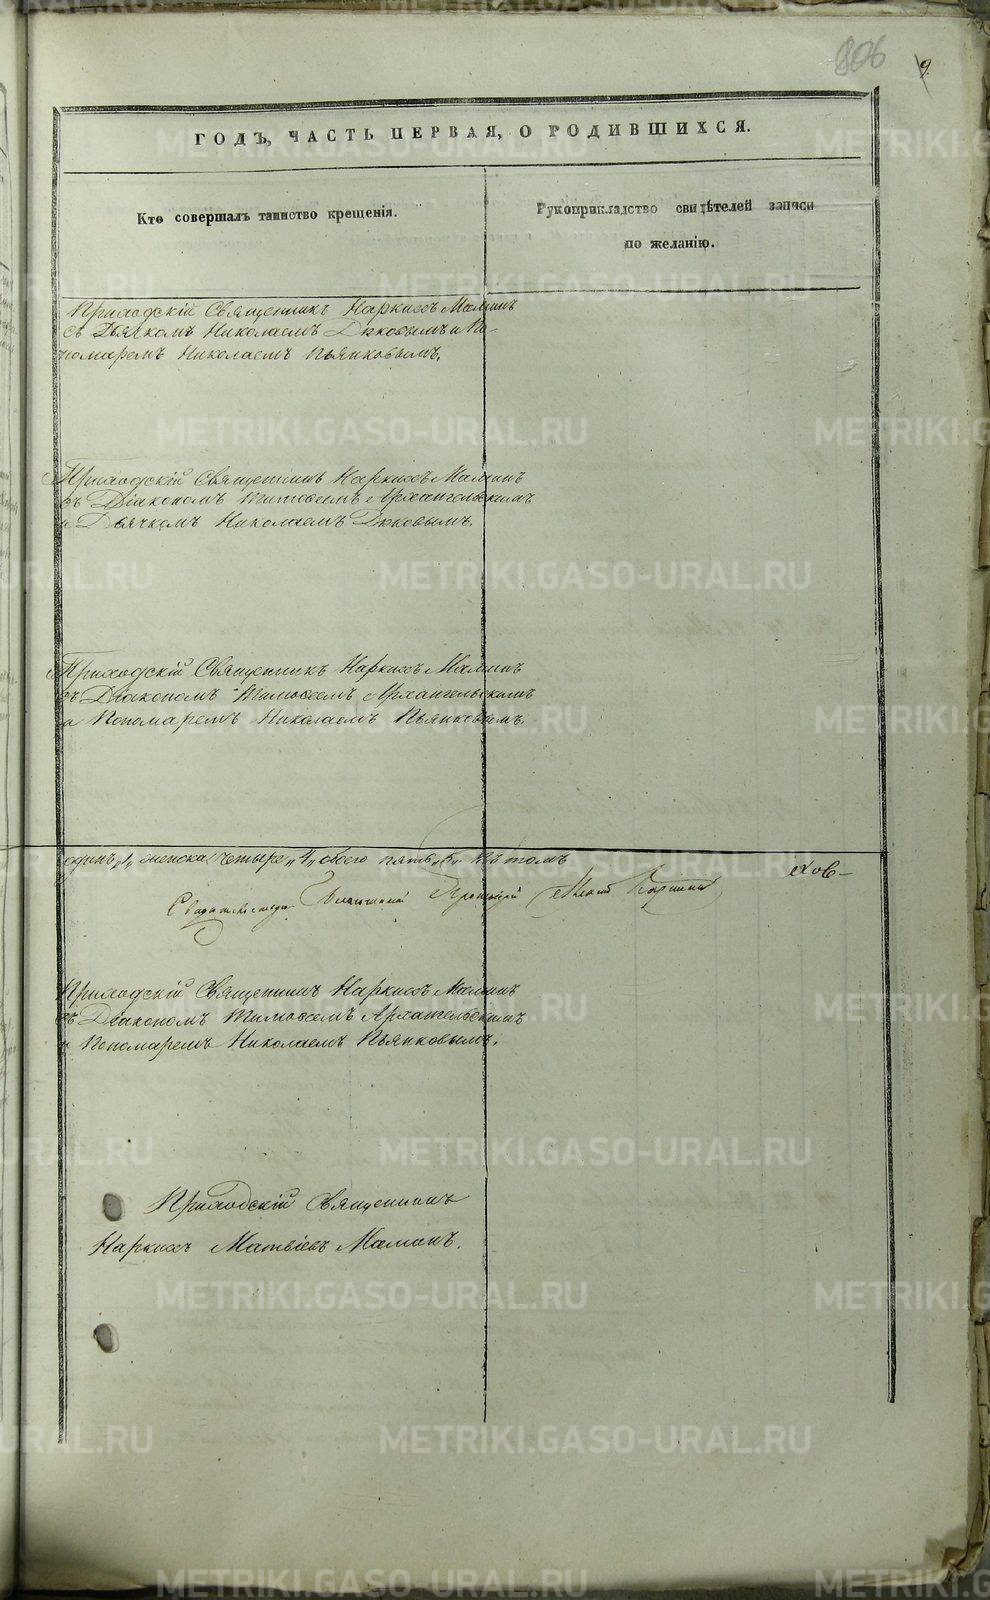 806
9.
ГОДЪ, ЧАСТЬ ПЕРВАЯ, О РОДИВШИХСЯ.
Кто совершалъ таинство крещенія.
Рукоприкладство свидѣтелей записи
по желанію.
Приходскій Священникъ Наркисъ Маминъ
съ Дьячкомъ Николаемъ Дюковымъ и По-
номаремъ Николаемъ Пьянковымъ.
Приходскій Священникъ Наркисъ Маминъ
съ Діакономъ Тимоѳеемъ Архангельскимъ
и Дьячкомъ Николаемъ Дюковымъ.
Приходскій Священникъ Наркисъ Маминъ
съ Діакономъ Тимоѳеемъ Архангельскимъ
и Пономаремъ Николаемъ Пьянковымъ.
одинъ „1„ женска четыре „4„ обоего пять „5„ въ томъ
Свидѣтельствовалъ Благочинный Протоіерей
Приходскій Священникъ Наркисъ Маминъ
съ Діакономъ Тимоѳеемъ Архангельскимъ
и Пономаремъ Николаемъ Пьянковымъ.
Приходскій Священникъ
Наркисъ Матвіевъ Маминъ.
METRIKI.GASO-URAL.RU